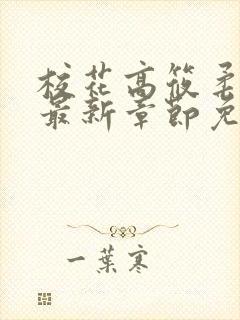 校花高筱柔
最新章节免
一葉寒